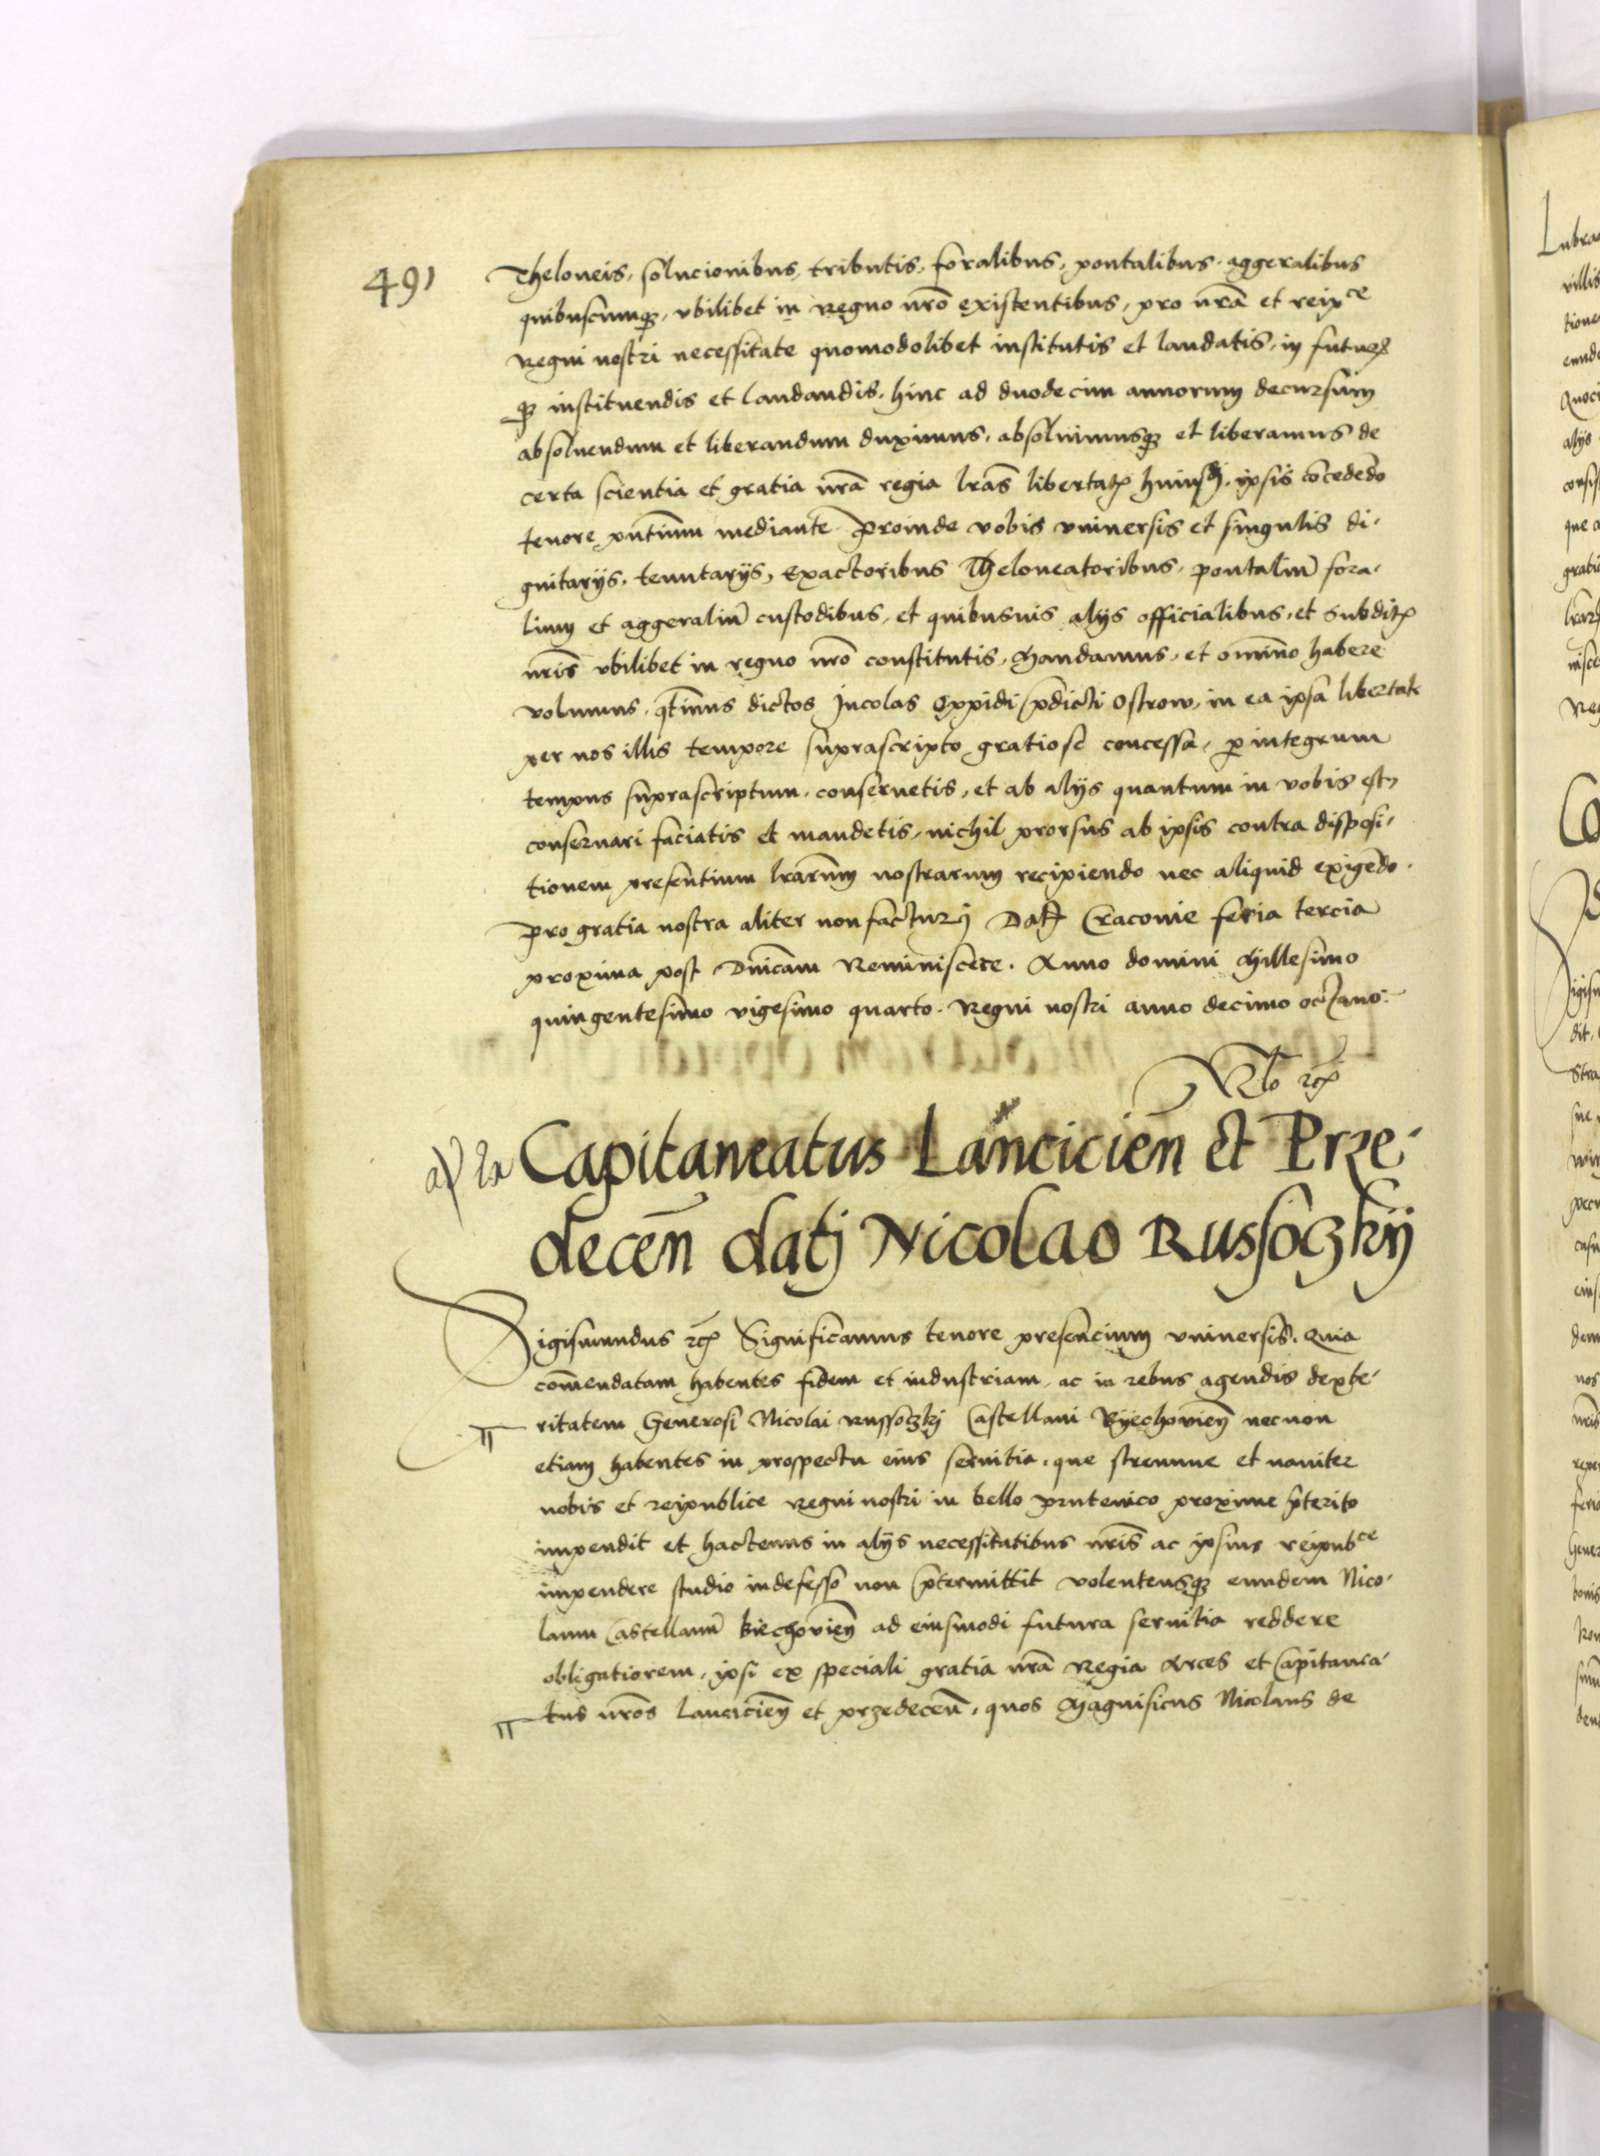 491
Theloneis, solucionibus, tributis, foralibus, pontalibus, aggeralibus
quibuscunq3, vbilibet in Regno nrō existentibus, pro nrā et reipce
Regni nostri necessitate quomodolibet institutis et laudatis, in futurꝫ
q3 instituendis et laudandis, hinc ad duodecim annorum decursum
absoluendum et liberandum duximus, absoluimusq3 et liberamus de
certa scientia et gratia nrā regia lrās libertatꝭ huiusꝫ ipsis cōcedēdo
tenore pn̄tium mediante Proinde vobis vniuersis et singulis di-
gnitarijs, tenutarijs, Exactoribus Theloneatoribus, pontaliū fora-
lium et aggeraliū custodibus, et quibusuis alijs officialibus, et subditꝭ
nrīs vbilibet in regno nrō constitutis, Mandamus, et omnīno habere
volumus, qt̄inus dictos Incolas Oppidi p̄dicti Ostrow, in ea ipsa libertate
per nos illis tempore suprascripto gratiose concessa, ꝑ integrum
tempus suprascriptum, conseruetis, et ab alijs quantum in vobis est,
conseruari faciatis et mandetis, nichil prorsus ab ipsis contra disposi-
tionem presentium lrārum nostrarum recipiendo nec aliquid exigēdo.
pro gratia nostra aliter non facturj Datꝫ Cracouie feria tercia
proxima post Dnīcam Reminiscere. Anno domini Millesimo
quingentesimo vigesimo quarto. Regni nostri anno decimo octauo.
Rl̄o rcꝭ
Capitaneatus Lancicień et Prze-
deceń datj Nicolao Russoczkij
Sigismundus rcꝭ Significamus tenore presencium vniuersis. Quia
com̄endatam habentes fidem et industriam, ac in rebus agendis dexte-
ritatem Generosi Nicolai Russoczkj Castellani Byechowień necnon
etiam habentes in prospectu eius seruitia, que strennue et nauiter
nobis et reipublice Regni nostri in bello prutenico proxime p̄terito
impendit et hactenus in alijs necessitatibus nrīs ac ipsius reipubce
impendere studio indefesso non p̄termittit volentesq3 eundem Nico-
laum Castellanū Biechowień ad eiusmodi futura seruitia reddere
obligatiorem, ipsi ex speciali gratia nrā Regia Arces et Capitanea-
tus nrōs Lancicień et przedeceń, quos Magnificus Nicolaus de